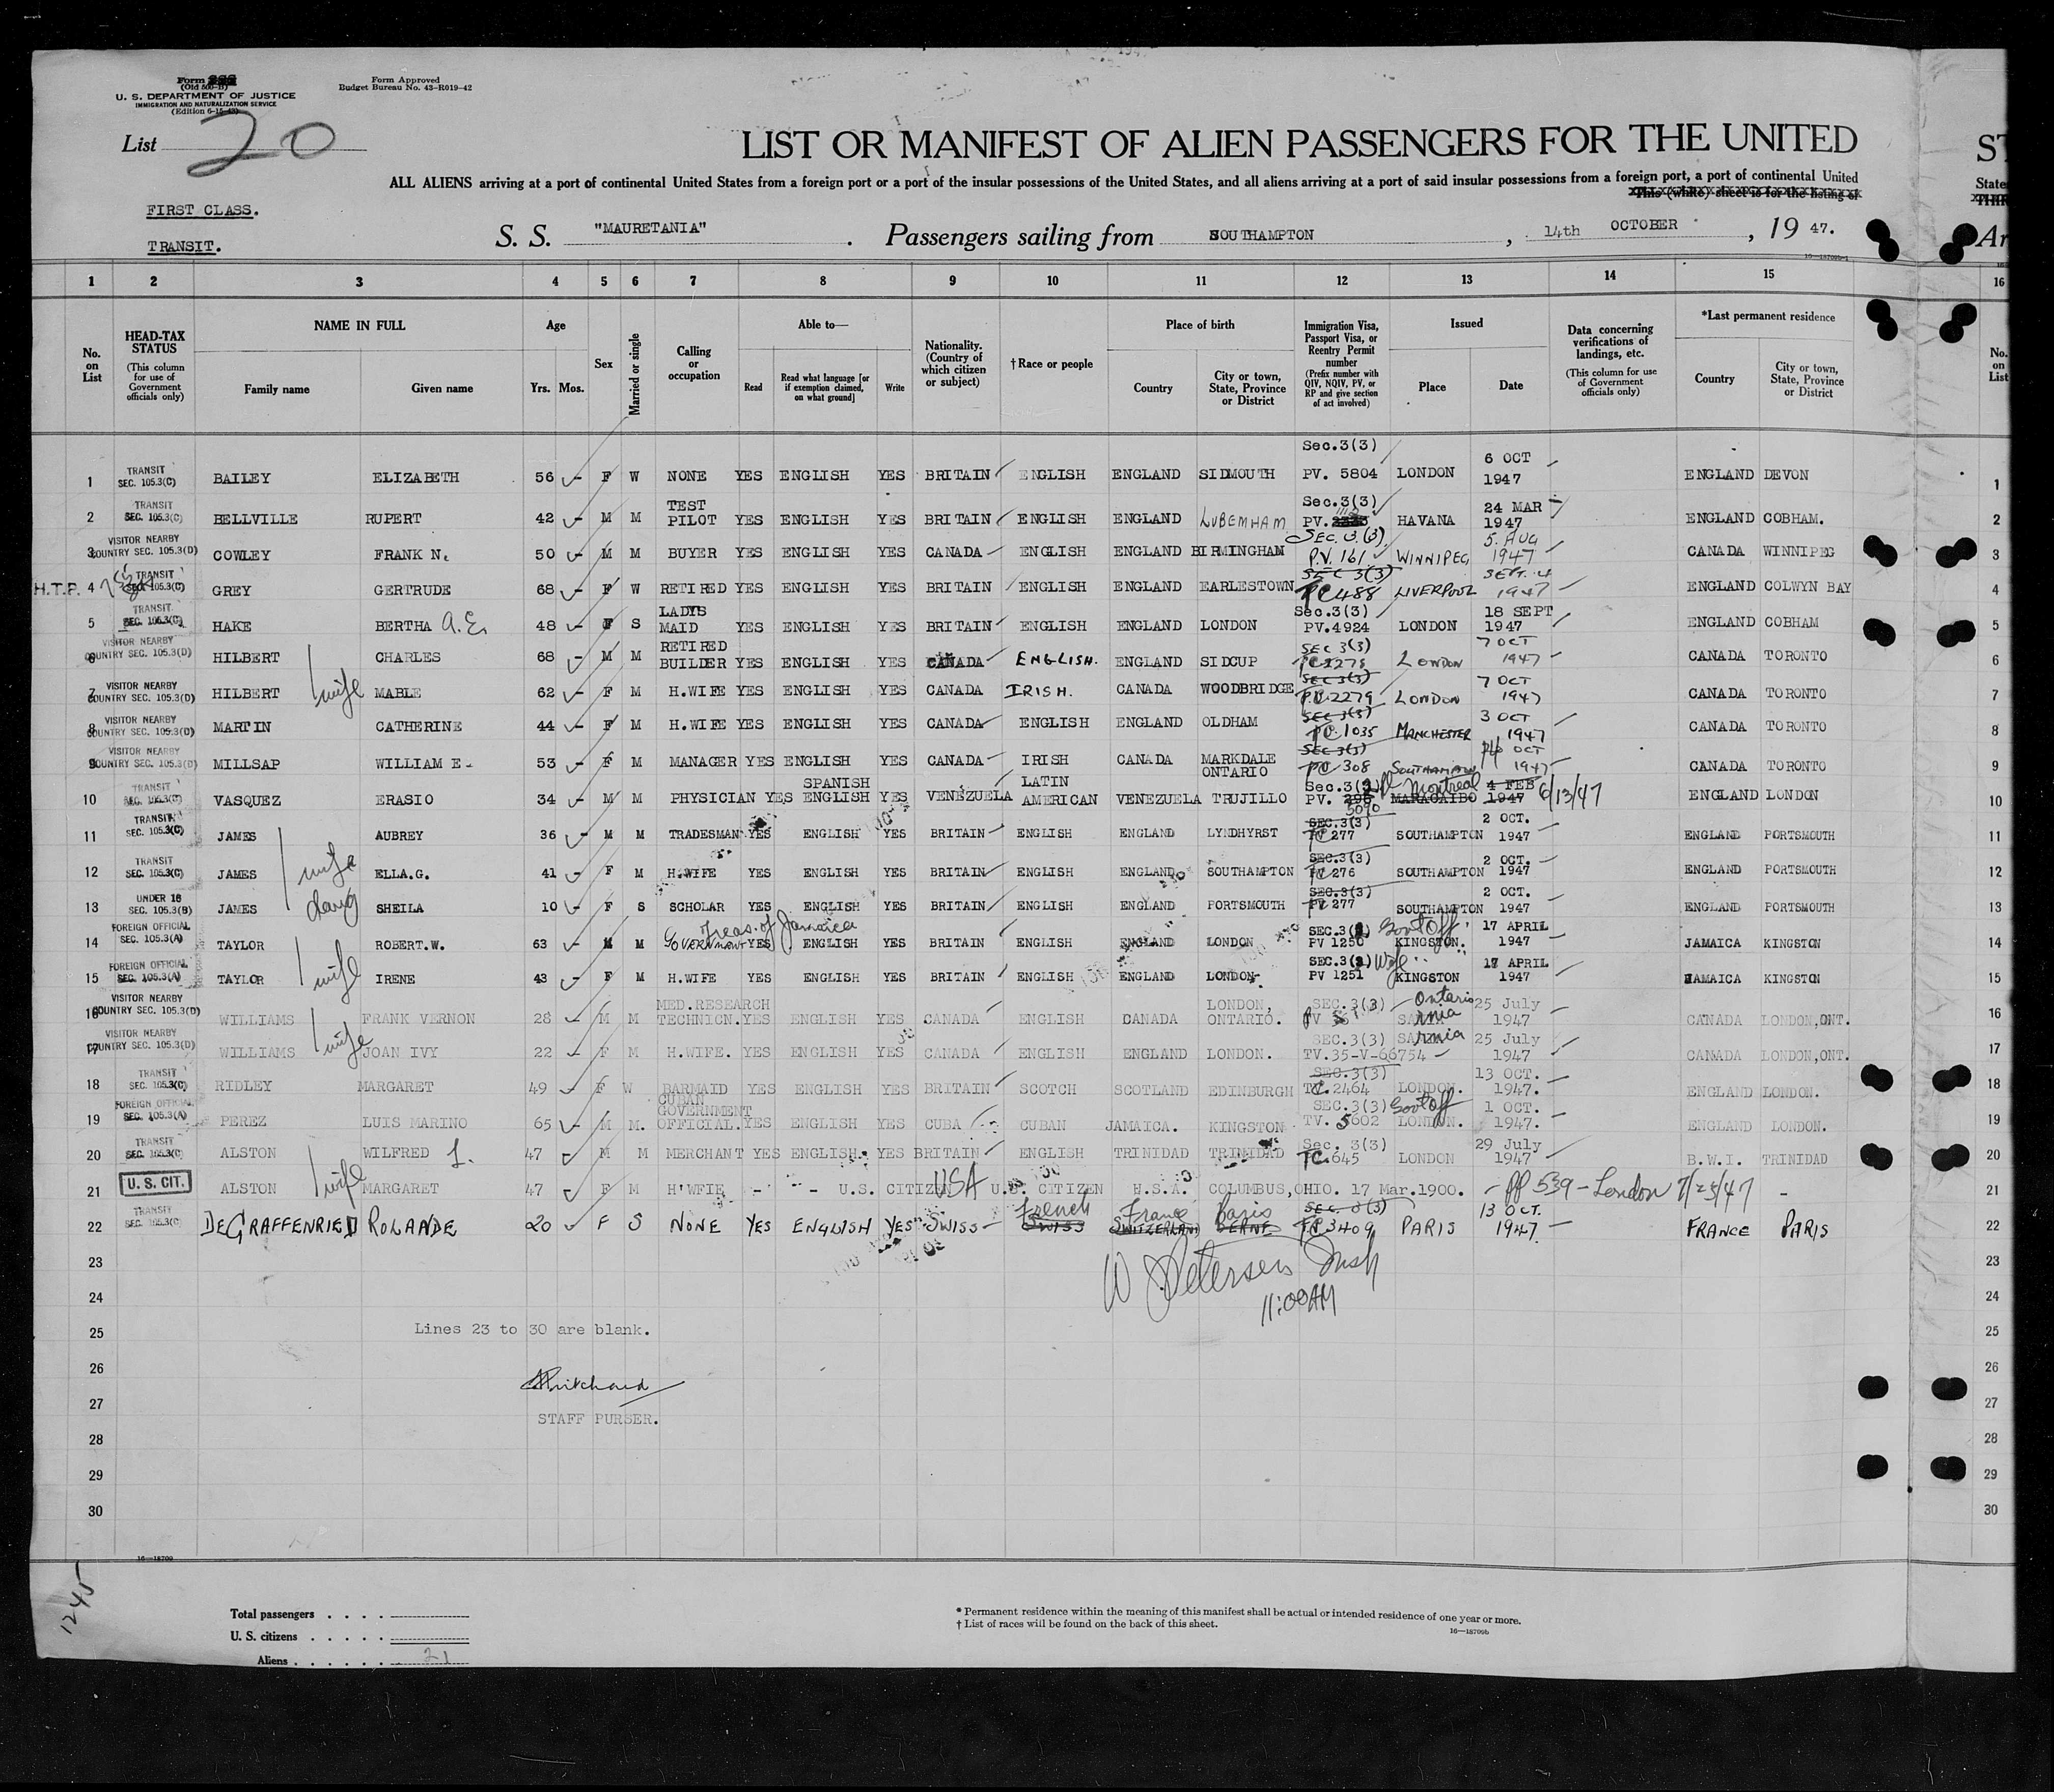 Form
(Old 500-B)
U. S. DEPARTMENT OF JUSTICE
IMMIGRATION AND NATURALIZATION SERVICE
Form Approved
Budget Bureau No. 43-R019-42
List 20
LIST OR MANIFEST OF ALIEN PASSENGERS FOR THE UNITED
ST
ALL ALIENS arriving at a port of continental United States from a foreign port or a port of the insular possessions of the United States, and all aliens arriving at a port of said insular possessions from a foreign port, a port of continental United
State
This (white) sheet is for the listing of
FIRST CLASS.
TRANSIT.
S. S. "MAURETANIA" . Passengers sailing from SOUTHAMPTON , 14th OCTOBER , 19 47.
Ar
16—18709b-1
1 2 3 4 5 6 7 8 9 10 11 12 13 14 15 16
No. on List
HEAD-TAX STATUS (This column for use of Government officials only)
NAME IN FULL Family name Given name
Age Yrs. Mos.
Sex
Married or single
Calling or occupation
Able to— Read Read what language [or if exemption claimed, on what ground] Write
Nationality. (Country of which citizen or subject)
† Race or people
Place of birth Country City or town, State, Province or District
Immigration Visa, Passport Visa, or Reentry Permit number (Prefix number with QIV, NQIV, PV, or RP and give section of act involved)
Issued Place Date
Data concerning verifications of landings, etc. (This column for use of Government officials only)
*Last permanent residence Country City or town, State, Province or District
No. on List
1 TRANSIT SEC. 105.3(C) BAILEY ELIZABETH 56 F W NONE YES ENGLISH YES BRITAIN ENGLISH ENGLAND SIDMOUTH Sec.3(3) PV. 5804 LONDON 6 OCT 1947 ENGLAND DEVON 1
2 TRANSIT SEC. 105.3(C) BELLVILLE RUPERT 42 M M TEST PILOT YES ENGLISH YES BRITAIN ENGLISH ENGLAND LUBEMHAM Sec.3(3) PV. HAVANA 24 MAR 1947 ENGLAND COBHAM. 2
3 VISITOR NEARBY COUNTRY SEC. 105.3(D) COWLEY FRANK N. 50 M M BUYER YES ENGLISH YES CANADA ENGLISH ENGLAND BIRMINGHAM SEC. 3.(3). P.V. 161 WINNIPEG 5. AUG 1947 CANADA WINNIPEG 3
H.T.P. 4 TRANSIT SEC. 105.3(C) GREY GERTRUDE 68 F W RETIRED YES ENGLISH YES BRITAIN ENGLISH ENGLAND EARLESTOWN SEC 3(3) TC 488 LIVERPOOL SEPT. 4 1947 ENGLAND COLWYN BAY 4
5 TRANSIT SEC. 105.3(C) HAKE BERTHA A.E. 48 F S LADYS MAID YES ENGLISH YES BRITAIN ENGLISH ENGLAND LONDON Sec.3(3) PV.4924 LONDON 18 SEPT 1947 ENGLAND COBHAM 5
6 VISITOR NEARBY COUNTRY SEC. 105.3(D) HILBERT CHARLES 68 M M RETIRED BUILDER YES ENGLISH YES CANADA ENGLISH. ENGLAND SIDCUP SEC 3(3) TC2278 LONDON 7 OCT 1947 CANADA TORONTO 6
7 VISITOR NEARBY COUNTRY SEC. 105.3(D) HILBERT wife MABLE 62 F M H.WIFE YES ENGLISH YES CANADA IRISH. CANADA WOODBRIDGE SEC 3(3) 2279 LONDON 7 OCT 1947 CANADA TORONTO 7
8 VISITOR NEARBY COUNTRY SEC. 105.3(D) MARTIN CATHERINE 44 F M H.WIFE YES ENGLISH YES CANADA ENGLISH ENGLAND OLDHAM SEC 3(3) TC.1035 MANCHESTER 3 OCT 1947 CANADA TORONTO 8
9 VISITOR NEARBY COUNTRY SEC. 105.3(D) MILLSAP WILLIAM E. 53 F M MANAGER YES ENGLISH YES CANADA IRISH CANADA MARKDALE ONTARIO SEC 3(3) TC 308 SOUTHAMPTON OCT 1947 CANADA TORONTO 9
10 TRANSIT SEC. 105.3(C) VASQUEZ ERASIO 34 M M PHYSICIAN YES SPANISH ENGLISH YES VENEZUELA LATIN AMERICAN VENEZUELA TRUJILLO Sec.3(2) PV. 295 5090 Montreal MARACAIBO 4 FEB 1947 6/13/47 ENGLAND LONDON 10
11 TRANSIT SEC. 105.3(C) JAMES AUBREY 36 M M TRADESMAN YES ENGLISH YES BRITAIN ENGLISH ENGLAND LYNDHYRST SEC.3(3) 277 SOUTHAMPTON 2 OCT. 1947 ENGLAND PORTSMOUTH 11
12 TRANSIT SEC. 105.3(C) JAMES wife ELLA.G. 41 F M H.WIFE YES ENGLISH YES BRITAIN ENGLISH ENGLAND SOUTHAMPTON SEC.3(3) 276 SOUTHAMPTON 2 OCT. 1947 ENGLAND PORTSMOUTH 12
13 UNDER 16 SEC. 105.3(B) JAMES daug SHEILA 10 F S SCHOLAR YES ENGLISH YES BRITAIN ENGLISH ENGLAND PORTSMOUTH SEC.3(3) 277 SOUTHAMPTON 2 OCT. 1947 ENGLAND PORTSMOUTH 13
14 FOREIGN OFFICIAL SEC. 105.3(A) TAYLOR ROBERT.W. 63 M M GOVERNMANT Treas. of Jamaica YES ENGLISH YES BRITAIN ENGLISH ENGLAND LONDON SEC.3( ) PV 1250 Govt Off KINGSTON. 17 APRIL 1947 JAMAICA KINGSTON 14
15 FOREIGN OFFICIAL SEC. 105.3(A) TAYLOR wife IRENE 43 F M H.WIFE YES ENGLISH YES BRITAIN ENGLISH ENGLAND LONDON SEC.3( ) PV 1251 Wife KINGSTON 17 APRIL 1947 JAMAICA KINGSTON 15
16 VISITOR NEARBY COUNTRY SEC. 105.3(D) WILLIAMS FRANK VERNON 28 M M MED.RESEARCH TECHNICN. YES ENGLISH YES CANADA ENGLISH CANADA LONDON, ONTARIO. SEC.3(3) PV Ontario 25 July 1947 CANADA LONDON,ONT. 16
17 VISITOR NEARBY COUNTRY SEC. 105.3(D) WILLIAMS wife JOAN IVY 22 F M H.WIFE. YES ENGLISH YES CANADA ENGLISH ENGLAND LONDON. SEC.3(3) TV.35-V-66754 25 July 1947 CANADA LONDON,ONT. 17
18 TRANSIT SEC. 105.3(C) RIDLEY MARGARET 49 F W BARMAID YES ENGLISH YES BRITAIN SCOTCH SCOTLAND EDINBURGH SEC.3(3) TC.2464 LONDON. 13 OCT. 1947. ENGLAND LONDON. 18
19 FOREIGN OFFICIAL SEC. 105.3(A) PEREZ LUIS MARINO 65 M M. CUBAN GOVERNMENT OFFICIAL. YES ENGLISH YES CUBA CUBAN JAMAICA. KINGSTON SEC.3(3) TV. 5602 Govt Off LONDON. 1 OCT. 1947. ENGLAND LONDON. 19
20 TRANSIT SEC. 105.3(C) ALSTON WILFRED L. 47 M M MERCHANT YES ENGLISH. YES BRITAIN ENGLISH TRINIDAD TRINIDAD Sec. 3(3) TC.645 LONDON 29 July 1947 B.W.I. TRINIDAD 20
21 U. S. CIT. ALSTON wife MARGARET 47 F M H'WFIE - - U.S. CITIZEN USA U.S. CITIZEN H.S.A. COLUMBUS,OHIO. 17 Mar.1900. - pp 539 - London 7/25/47 - 21
22 TRANSIT SEC. 105.3(C) DEGRAFFENRIED ROLANDE 20 F S NONE YES ENGLISH YES SWISS French SWISS France SWITZERLAND Paris BERNE SEC. 3(3) TC 3409 PARIS 13 OCT. 1947. FRANCE PARIS 22
23 23
W Petersen Insp
24 11:00AM 24
25 Lines 23 to 30 are blank. 25
26 Pritchard 26
27 STAFF PURSER. 27
28 28
29 29
30 30
16—18709
1245
Total passengers . . . .
U. S. citizens . . . . .
Aliens . . . . . . 21
* Permanent residence within the meaning of this manifest shall be actual or intended residence of one year or more.
† List of races will be found on the back of this sheet.
16—18709b